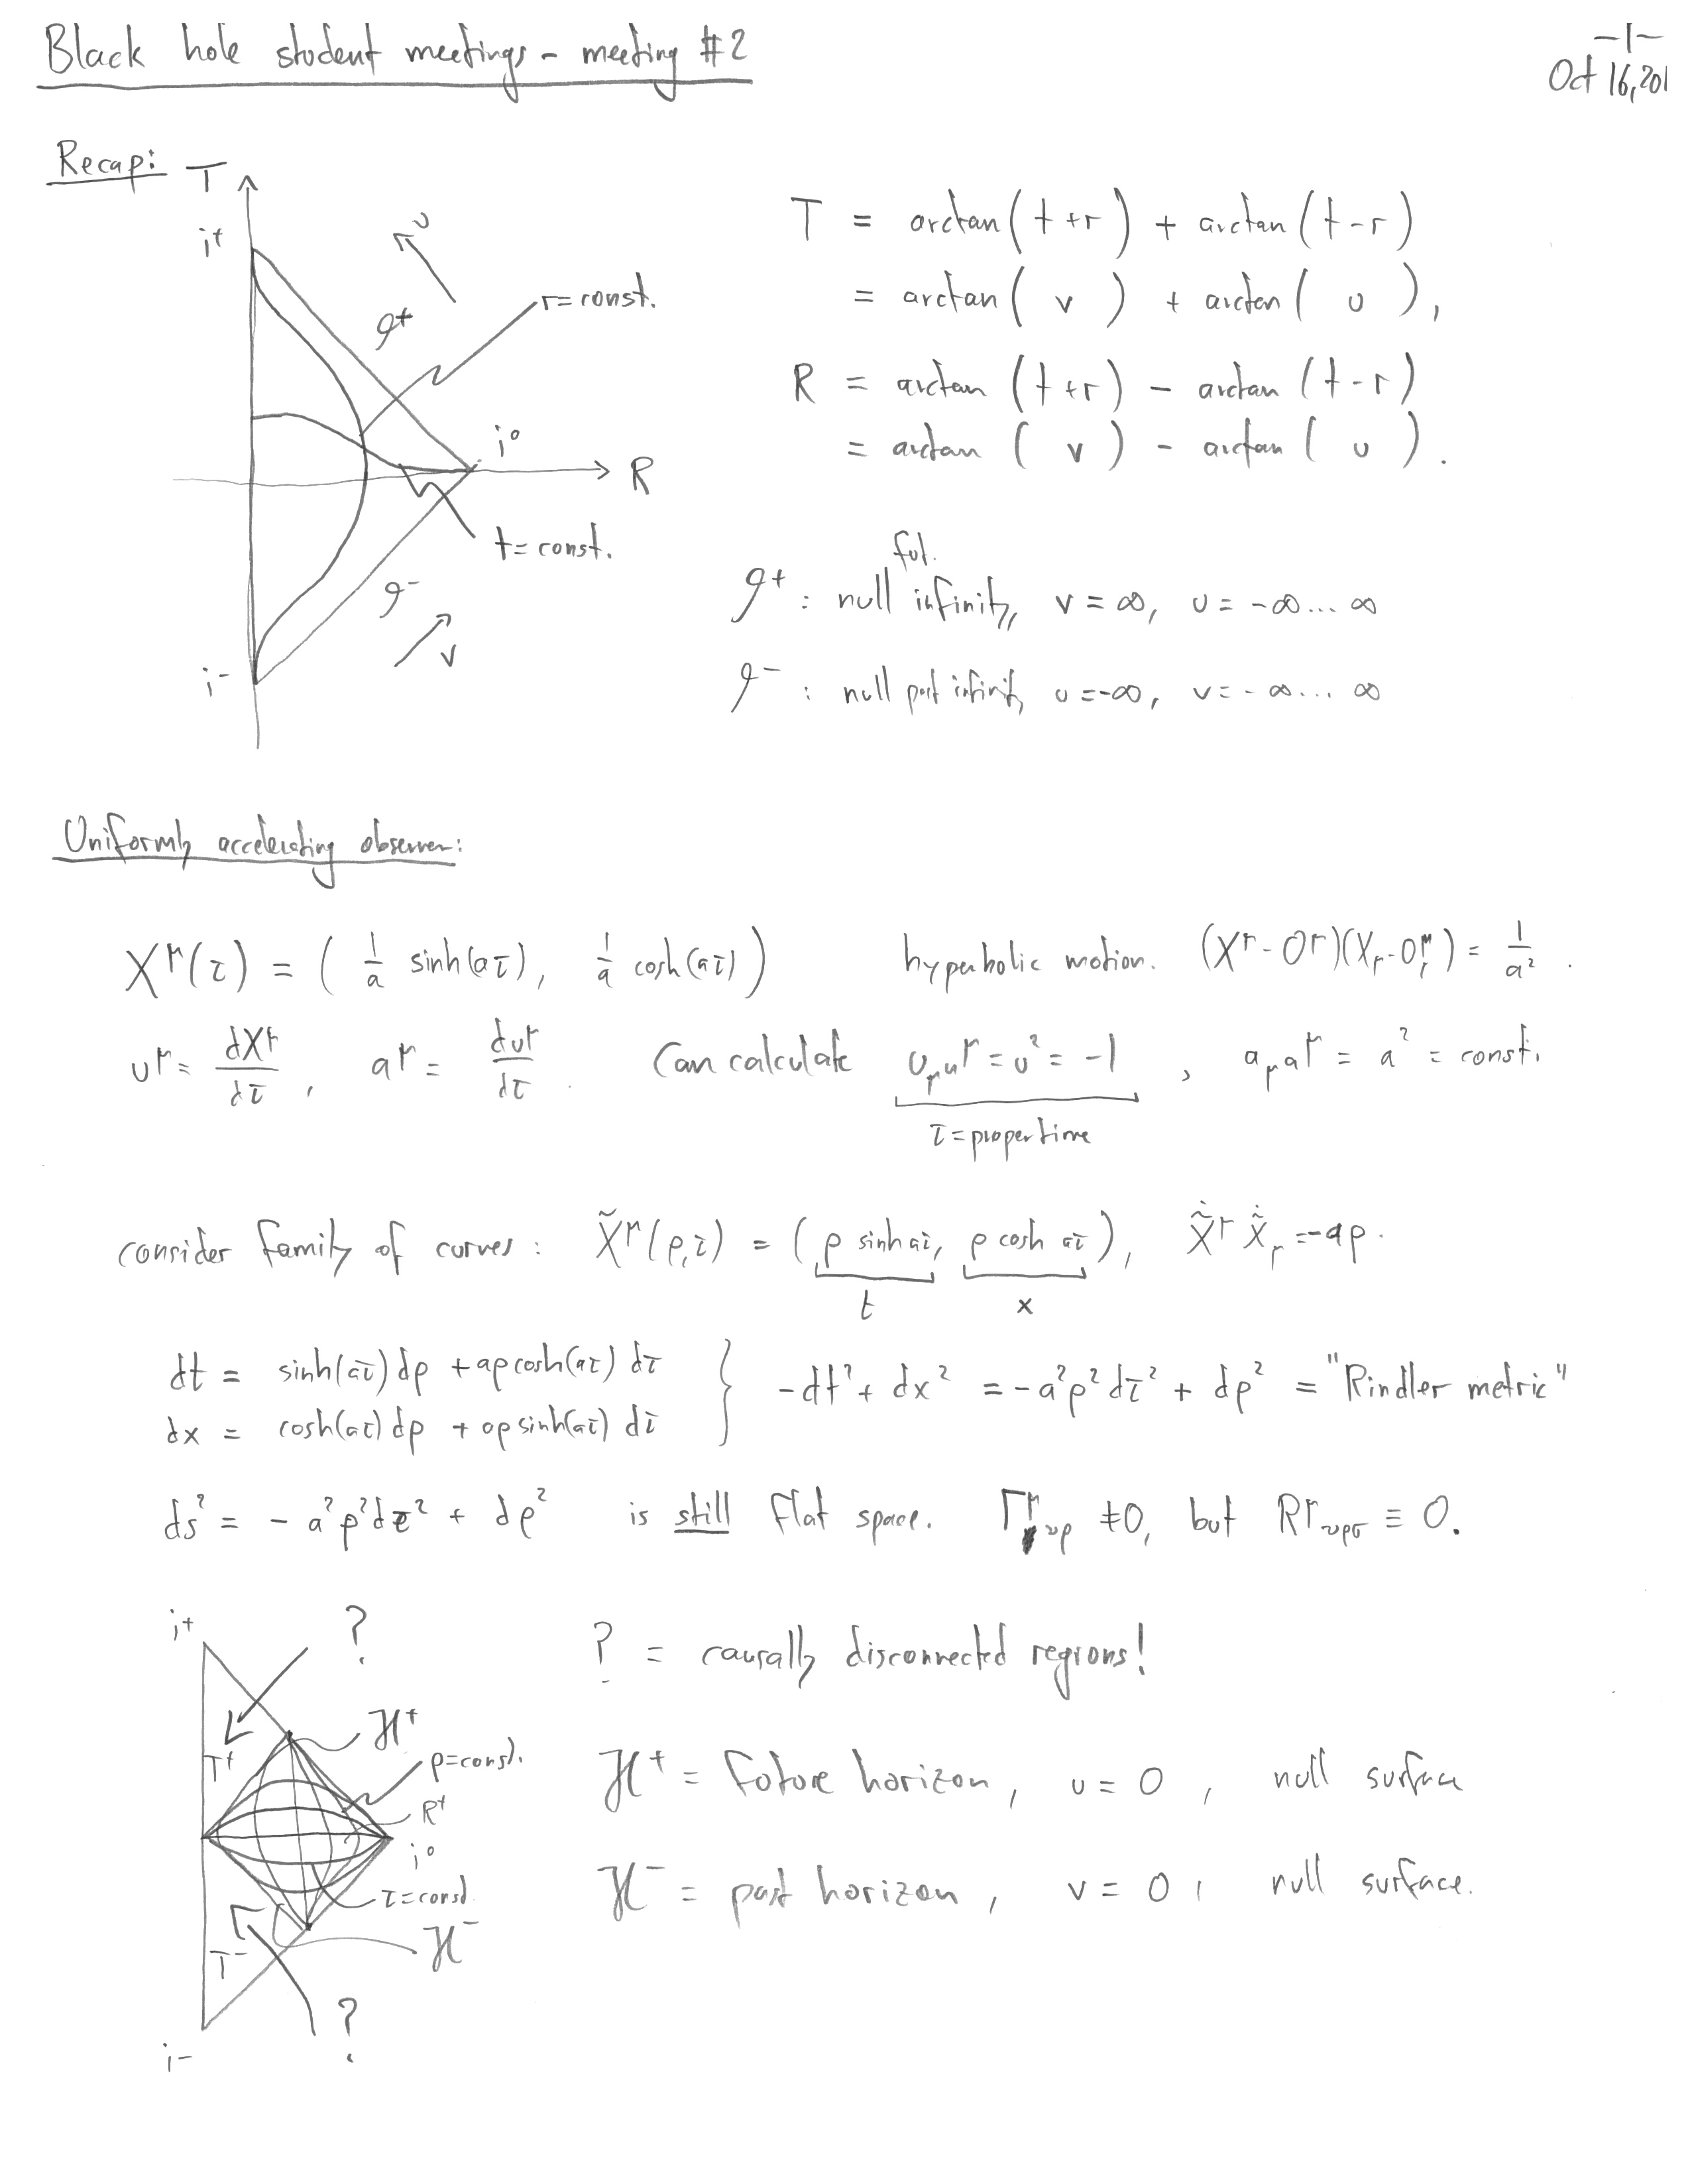 Black hole student meetings - meeting #2
-1-
Oct 16, 201
Recap:
T
i⁺
u
r=const.
𝓘⁺
i⁰
R
t=const.
𝓘⁻
v
i⁻
T = arctan(t+r) + arctan(t-r)
= arctan( v ) + arctan( u ),
R = arctan (t+r) - arctan (t-r)
= arctan ( v ) - arctan ( u ).
fut.
𝓘⁺ : null infinity, v = ∞, u = -∞...∞
𝓘⁻ : null past infinity u=-∞, v=-∞...∞
Uniformly accelerating observer:
X^μ(τ) = ( 1/a sinh(aτ), 1/a cosh(aτ) ) hyperbolic motion. (X^μ-O^μ)(X_μ-O_μ) = 1/a².
u^μ = dX^μ/dτ, a^μ = du^μ/dτ. Can calculate u_μu^μ = u² = -1, a_μa^μ = a² = const.
τ = proper time
consider family of curves: X̃^μ(ρ,τ) = (ρ sinh aτ, ρ cosh aτ), Ẋ̃^μ Ẋ̃_μ = -aρ.
t x
dt = sinh(aτ)dρ + aρcosh(aτ) dτ
dx = cosh(aτ)dρ + aρsinh(aτ) dτ
} -dt² + dx² = -a²ρ²dτ² + dρ² = "Rindler metric"
ds² = - a²ρ²dτ² + dρ² is still flat space. Γ^μ_νρ ≠ 0, but R^μ_νρσ ≡ 0.
i⁺
?
ℋ⁺
T⁺
ρ=const.
R⁺
i⁰
τ=const.
ℋ⁻
T⁻
?
i⁻
? = causally disconnected regions!
ℋ⁺ = future horizon, u = 0, null surface
ℋ⁻ = past horizon, v = 0, null surface.